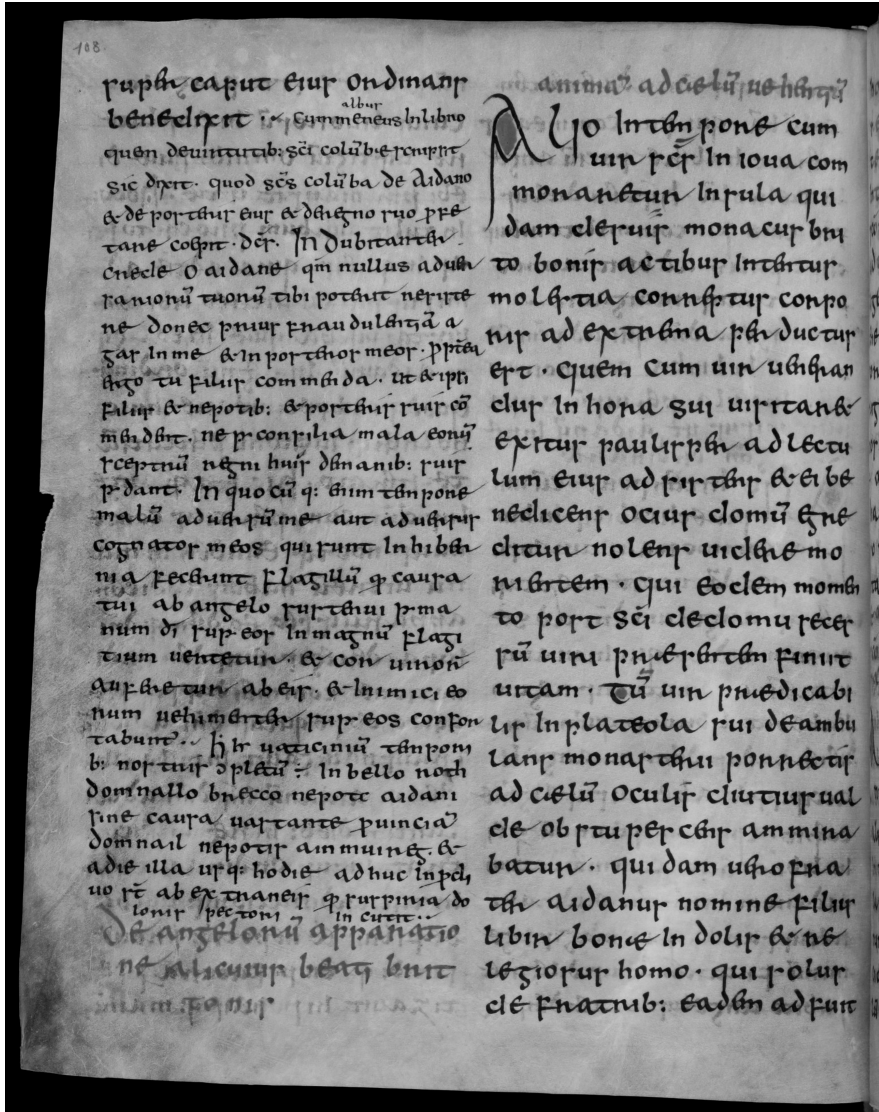 108
super caput eius ordinans
benedixit ·:~ Cummeneus albus in libro
quem de uirtutib: sc̄i columbæ scripsit
sic dixit· quod sc̄s colūba de Aidano
& de posteris eius & de regno suo ꝓfe
tare coepit· dc̄s· Indubitanter
crede O aidane qm̄ nullus aduer
sariorū tuorū tibi poterit resiste
re donec prius fraudulentiā a
gas in me & in posteros meos· ꝓpterea
ergo tu filiis commenda· ut & ipsi
filiis & nepotib: & posteris suis cō
mendent· ne per consilia mala eorū
sceptrū regni huius de manib: suis
perdant· In quocūq: enim tempore
malū aduersū me aut aduersus
cognatos meos qui sunt in hiber
nia fecerint flagillū qd causa
tui ab angelo sustenui per ma
num dī super eos in magnū flagi
tium uertetur· & cor uirorū
auferetur ab eis· & inimici eo
rum uehimenter super eos confor
tabunt̄·· hoc uaticiniū tempori
b: nostris conpletū ÷ in bello roth
domnallo brecco nepote aidani
sine causa uastante ꝓuinciā
domnail nepotis ainmuireg· &
a die illa usq: hodie adhuc in procli
uo st̄ ab extraneis qd suspiria do
loris pectori incutit··
De angelorū apparatio
ne alicuius beati brit
tonis
animā ad cælū uehentiū
Alio in tempore cum
uir sc̄s in ioua com
moraretur insula qui
dam de suis monacus bri
to bonis actibus intentus
molestia correptus corpo
ris ad extrema perductus
est· Quem cum uir ueneran
dus in hora sui uisitaret
exitus paulisper ad lectu
lum eius adsistens & ei be
nedicens ocius domū egre
ditur nolens uidere mo
rientem· qui eodem momen
to post sc̄i de domu seces
sū uiri præsentem finiit
uitam· Tū uir prædicabi
lis in plateola sui deambu
lans monasterii porrectis
ad cælū oculis diutius ual
de obstupescens ammira
batur· quidam uero fra
ter aidanus nomine filius
libir bonæ indolis & re
legiosus homo· qui solus
de fratrib: eadem adfuit